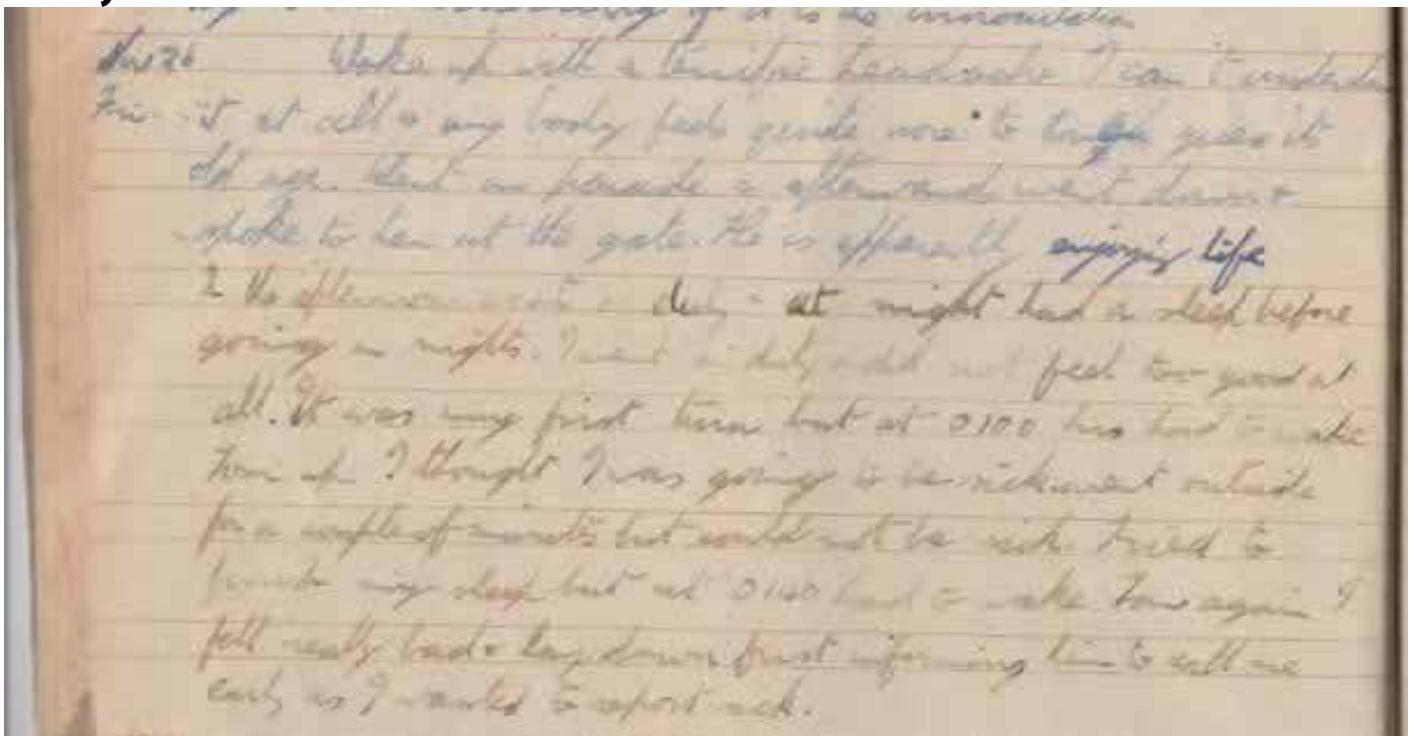 if it is the innoculation
Nov 26 Woke up with a terrific headache I can't understand
Fri. it at all & my body feels quite sore to touch
Went on parade & afterwards went down &
spoke to her at the gate. He is apparently enjoying life
I the afternoon went on duty & at night had a sleep before
going on nights. I went on duty & did not feel too good at
all. It was my first turn but at 0100 hrs had to wake
Tom up. I thought I was going to be sick & went outside
for a couple of minutes but could not be sick. Tried to
my sleep but at 0140 had to wake Tom again I
felt really bad & lay down first informing him to call me
early as I wanted to report sick.